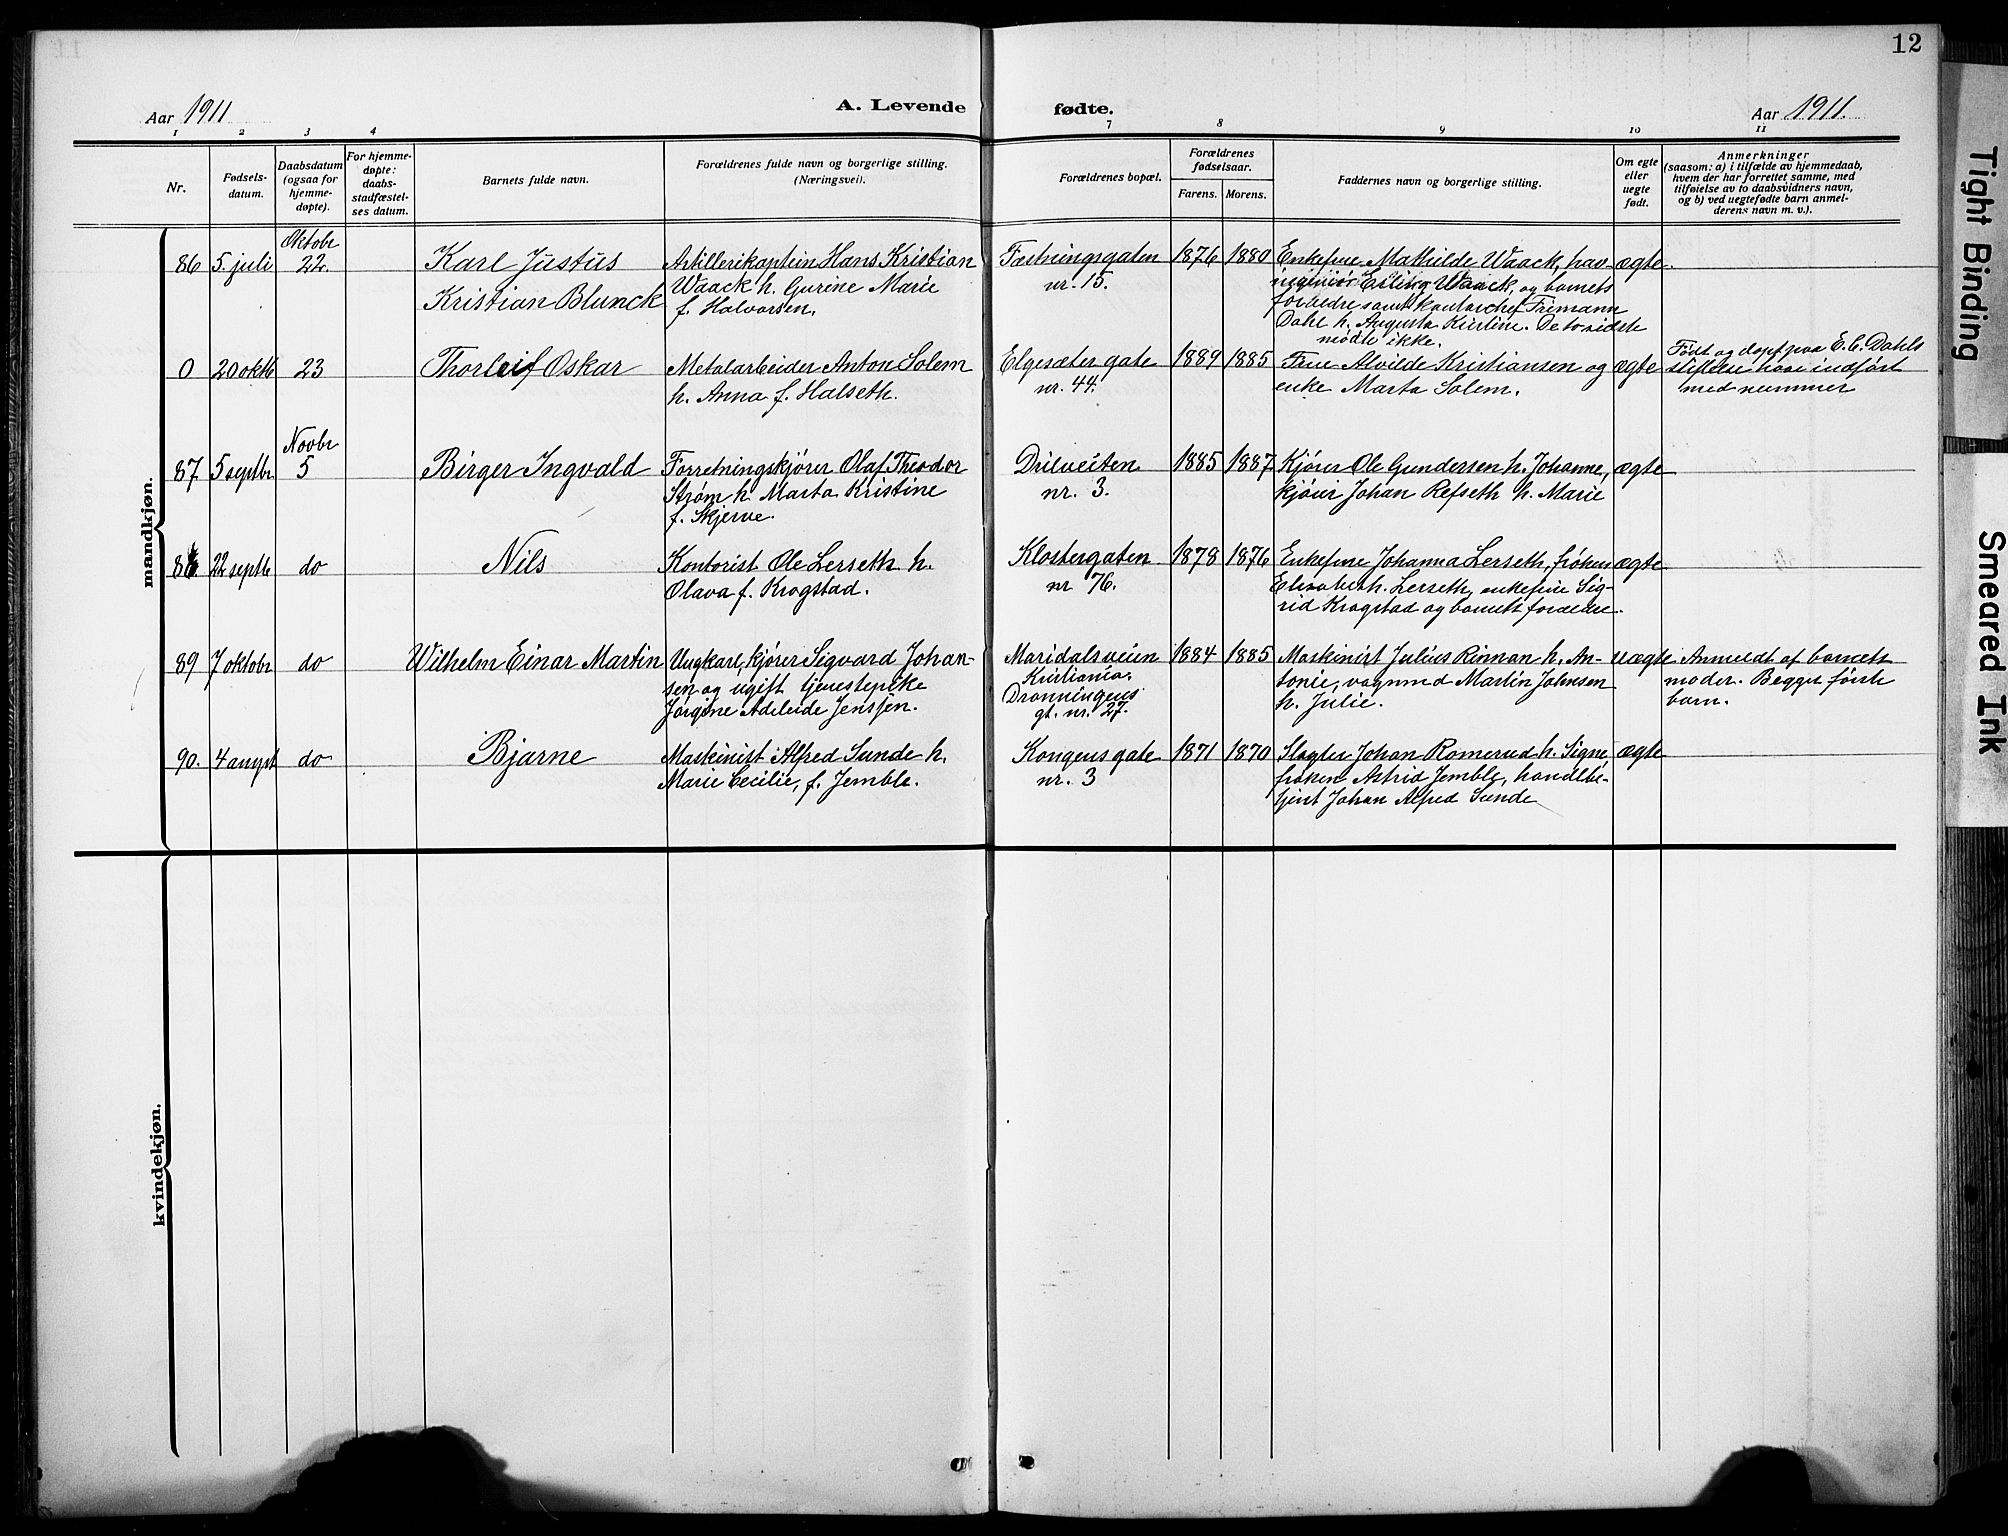 12
Aar 1911
A. Levende fødte.
Aar 1911.
1 2 3 4 7 8 9 10 11
Nr.
Fødsels-
datum.
Daabsdatum
(ogsaa for
hjemme-
døpte).
For hjemme-
døpte:
daabs-
stadfæstel-
ses datum.
Barnets fulde navn.
Forældrenes fulde navn og borgerlige stilling.
(Næringsvei).
Forældrenes bopæl.
Forældrenes
fødselsaar.
Farens. Morens.
Faddernes navn og borgerlige stilling.
Om egte
eller
uegte
født.
Anmerkninger
(saasom: a) i tilfælde av hjemmedaab,
hvem der har forrettet samme, med
tilføielse av to daabsvidners navn,
og b) ved uegtefødte barn anmel-
derens navn m. v.).
mandkjøn.
86 5. juli
Oktobr
22.
Karl Justus
Kristian Blunck
Artillerikaptein Hans Kristian
Waack h. Gurine Marie
f. Halvorsen.
Fæstningsgaten
nr. 15.
1876 1880
Enkefrue Mathilde Waack, hav-
ingeniør Erling Waack, og barnets
forældre samt kontorchef Fremann
Dahl h. Augusta Kirstine. De to sidste
mødte ikke.
ægte
0 20 oktb 23
Thorleif Oskar
Metalarbeider Anton Solem
h. Anna f. Halseth.
Elgesæter gate
nr. 44.
1889 1885
Frue Alvilde Kristiansen og
enke Marta Solem.
ægte
Født og døpt paa E. C. Dahls
stiftelse have indført
med nummer
87 5 septbr
Novbr
5
Birger Ingvald
Forretningskjører Olaf Theodor
Strøm h. Marta Kristine
f. Skjerve.
Drilveiten
nr. 3.
1885 1887
Kjører Ole Gundersen h. Johanne,
kjører Johan Refseth h. Marie
ægte
88. 22 septb do
Nils
Kontorist Ole Lerseth h.
Olava f. Krogstad.
Klostergaten
nr 76.
1878 1876
Enkefrue Johanna Lerseth, frøken
Elisabeth Lerseth, enkefrue Sig-
rid Krogstad og barnets forældre.
ægte
89 7 oktobr do
Wilhelm Einar Martin
Ungkarl, kjører Sigvard Johan-
sen og ugift tjenestepike
Jørgine Adeleide Jenssen.
Maridalsveien
Kristiania.
Dronningens
gt. nr. 27.
1884 1885
Maskinist Julius Rinnan h. An-
tonie, vognmd Martin Johnsen
h. Julie.
uægte
Anmeldt af barnets
moder. Begges første
barn.
90. 4 augst do
Bjarne
Maskinist Alfred Sunde h.
Marie Cecilie, f. Jemble.
Kongens gate
nr. 3
1871 1870
Slagter Johan Romerud h. Signe,
frøken Astrid Jemble, handelsbe-
tjent Johan Alfred Sunde
ægte
kvindekjøn.
Tight Binding
Smeared Ink